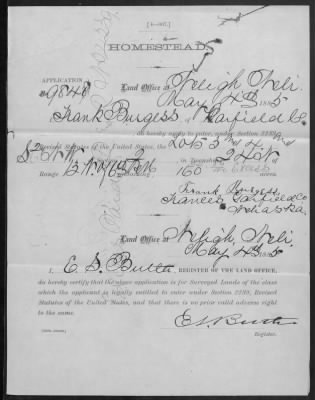 [4—007.]
HOMESTEAD.
APPLICATION
No 9848
Land Office at Neligh Neb.
May 4th 1885
I, Frank Burgess, of Garfield Co
do hereby apply to enter, under Section 2289,
Revised Statutes of the United States, the Lots 3 and 4 and
S2 NW 4 of Section 2 in Township 24 N
Range 13 W of 6th P.M. containing 160 acres
Frank Burgess
Garfield Co
Nebraska
Land Office at Neligh, Neb.
May 4th 1885
I, E. S. Butler, REGISTER OF THE LAND OFFICE,
do hereby certify that the above application is for Surveyed Lands of the class
which the applicant is legally entitled to enter under Section 2289, Revised
Statutes of the United States, and that there is no prior valid adverse right
to the same.
E. S. Butler
Register.